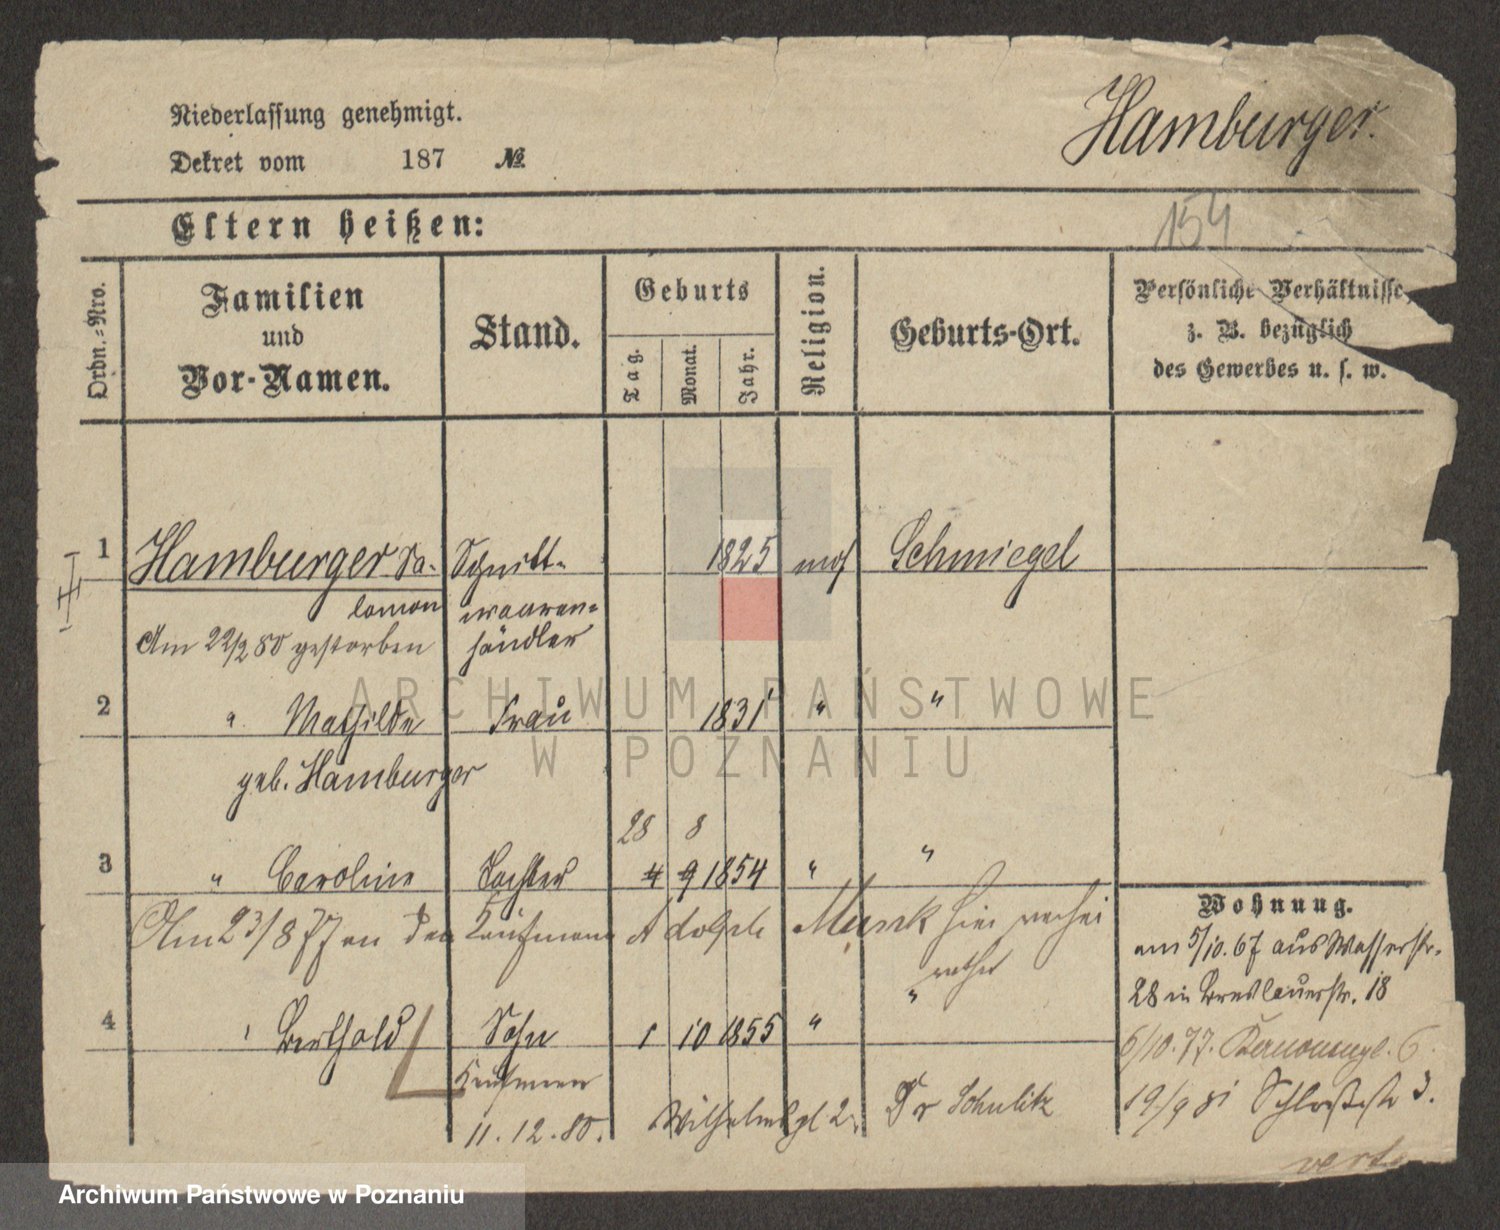 Niederlassung genehmigt.
Dekret vom 187 №
Hamburger.
154
Eltern heißen:
Ordn.-Nro.
Familien
und
Vor-Namen.
Stand.
Geburts
Tag.
Monat.
Jahr.
Religion.
Geburts-Ort.
Persönliche Verhältnisse,
z. B. bezüglich
des Gewerbes u. s. w.
1 Hamburger Sa- Schnitt- 1825 mos Schmiegel
lomon waaren-
Am 22/2 80 gestorben händler
2 " Mathilde Frau 1831 " "
geb. Hamburger
28 8
3 " Caroline Tochter 4 9 1854 " "
Am 23/8 77 an den Kaufmann Adolph Munk hier verhei
rathet
Wohnung.
am 5/10. 67 aus Wasserstr.
28 in Breslauerstr. 18
4 " Berthold Sohn 1 10 1855 " "
6/10. 77. 6.
Kaufmann
11. 12. 80. Wilhelmspl 2. Dr Schulitz
19/9 81 Schloßstr 3.
vert
ARCHIWUM PAŃSTWOWE
W POZNANIU
Archiwum Państwowe w Poznaniu